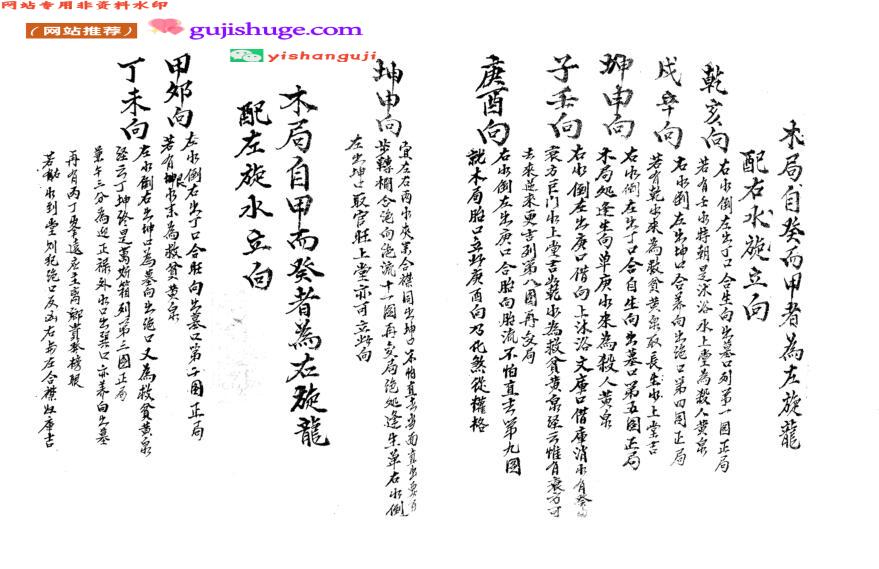 网站专用非资料水印
（网站推荐）
gujishuge.com
yishanguji
木局自癸而甲者為左旋龍
配右水旋立向
乾亥向
右水倒左出丁口合生向出墓口列第一圖正局
若有壬水特朝是沐浴水上堂為殺人黄泉
戌辛向
右水倒左出坤口合养向出绝口第四圖正局
若有乾水來為救貧黄泉取長生水上堂吉
坤申向
右水倒左出丁口合自生向出墓口第五圖正局
木局絕處逢生向单庚水來為殺人黄泉
子壬向
右水倒左出庚口借向上沐浴文庫口借庫消水有癸
衰方巨门水上堂吉 乾水為救貧黄泉經云惟有衰方可
去來迎來更吉列第八圖再交局
庚酉向
右水倒左出庚口合胎向胎流不怕直去第九圖
就木局胎口立 庚酉向乃化煞從權格
坤申向
宜左右两水夾 合襟同出坤口不怕直去
步轉欄合绝向绝流十一圖再交局绝処逢生单右水倒
左出坤口取官旺上堂亦可立 向
木局自甲而癸者為右旋龍
配左旋水立向
甲卯向
左水倒右出丁口合旺向出墓口第二圖正局
若有坤水來為救貧黄泉
丁未向
左水倒右出坤口為墓向出绝口又為救貧黄泉
經云丁坤终是萬斯箱列第三圖正局
葉午三分為迎正禄 水口出巽口亦养向出墓
再有丙丁 遠 主离鄉貴 榜 
若 水到堂 犯绝口反凶右 左合襟 庫吉